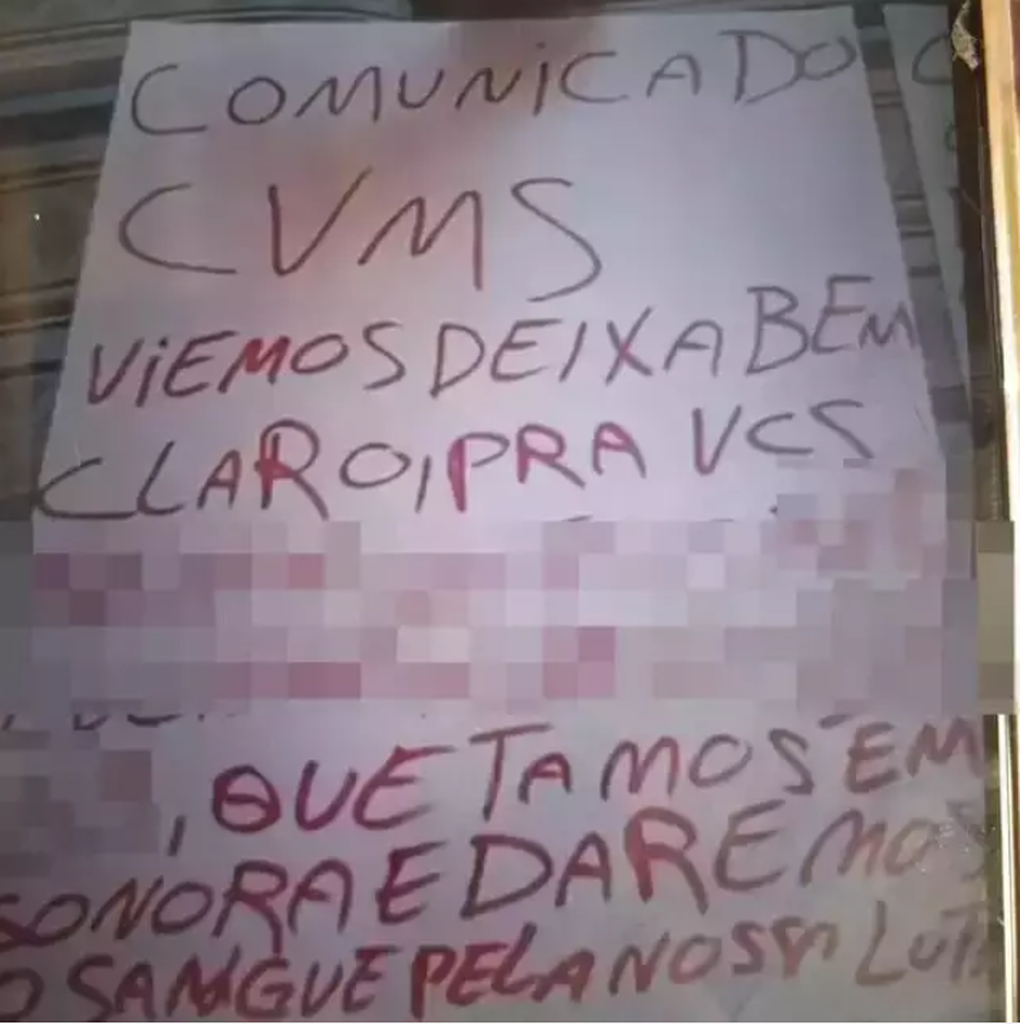 COMUNICADO
CVMS
ViEMOS DEIXA BEM
CLARO, PRA VCS
, QUE TAMOS EM
SONORA E DAREMOS
O SANGUE PELA NOSSA LUTA